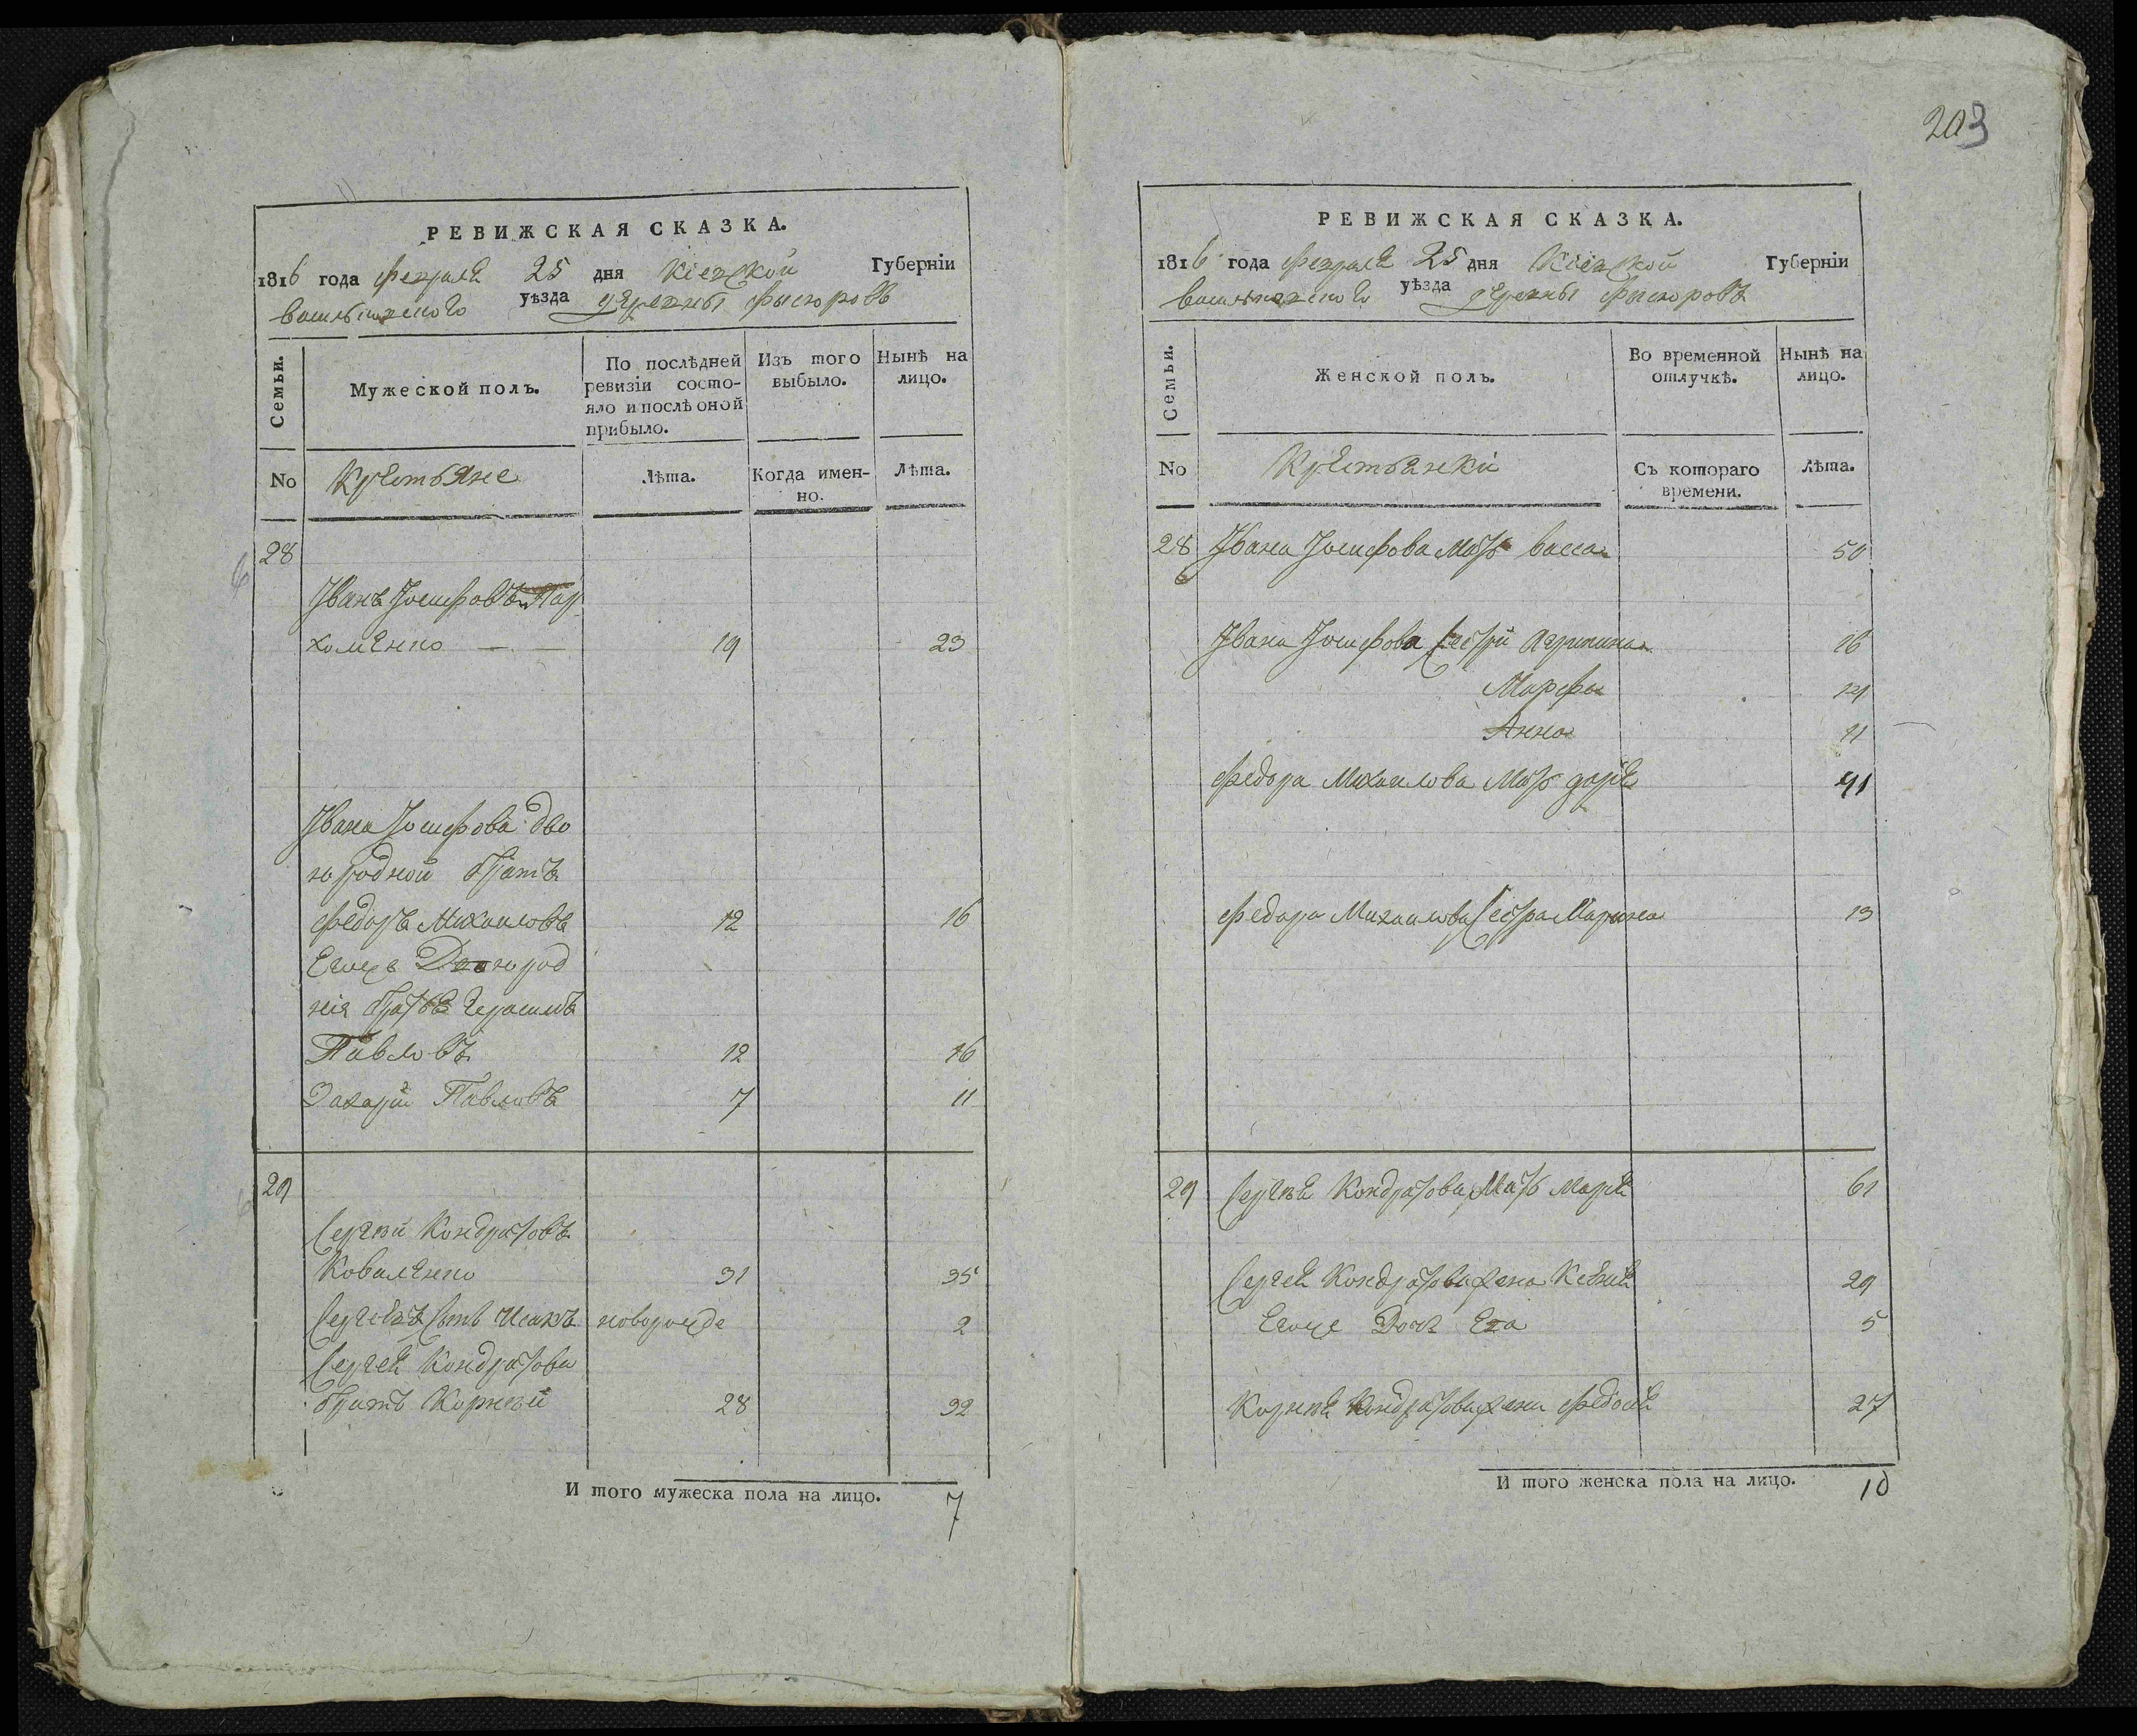 203
РЕВИЖСКАЯ СКАЗКА.
1816 года февраля 25 дня Кіевской Губерніи
васильковского уѣзда деревны
Семьи.
Мужеской полъ.
По послѣдней
ревизіи состо-
яло и послѣ оной
прибыло.
Изъ того
выбыло.
Нынѣ на
лицо.
No
Крестьяне
Лѣта.
Когда имен-
но.
Лѣта.
28
Іванъ Іосифовъ Пар
хоменко — — 19 23
Івана Іосифова дво
юродной братъ
Федоръ Михаиловъ 12 16
Егожъ Двоюрод
нія братья Герасимъ
Павловъ 12 16
Захарій Павловъ 7 11
29
Сергѣй Кондратовъ
Коваленко 31 35
Сергѣевъ Сынъ Исакъ новорожде 2
Сергея Кондратова
братъ Корнѣй 28 32
И того мужеска пола на лицо. 7
РЕВИЖСКАЯ СКАЗКА.
1816 года февраля 25 дня Кіевской Губерніи
васильковского уѣзда деревны
Семьи.
Женской полъ.
Во временной
отлучкѣ.
Нынѣ на
лицо.
No
Крестьянки
Съ котораго
времени.
Лѣта.
28 Івана Іосифова Мать васса 50
Івана Іосифова Сестри Агрипина 16
Марфа 14
Анна 11
Федора Михаилова Мать дарія 41
Федора Михаилова Сестра Марина 13
29 Сергѣя Кондратова Мать Марія 61
Сергея Кондратова жена Ксенія 29
Егоже Дочь Ева 5
Корнѣя Кондратова жена Федосія 27
И того женска пола на лицо. 10